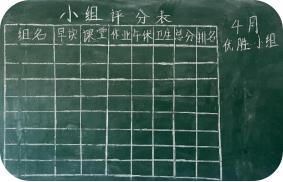 小组评分表
组名 早读 课堂 作业 午休 卫生 总分 排名
4月
优胜小组